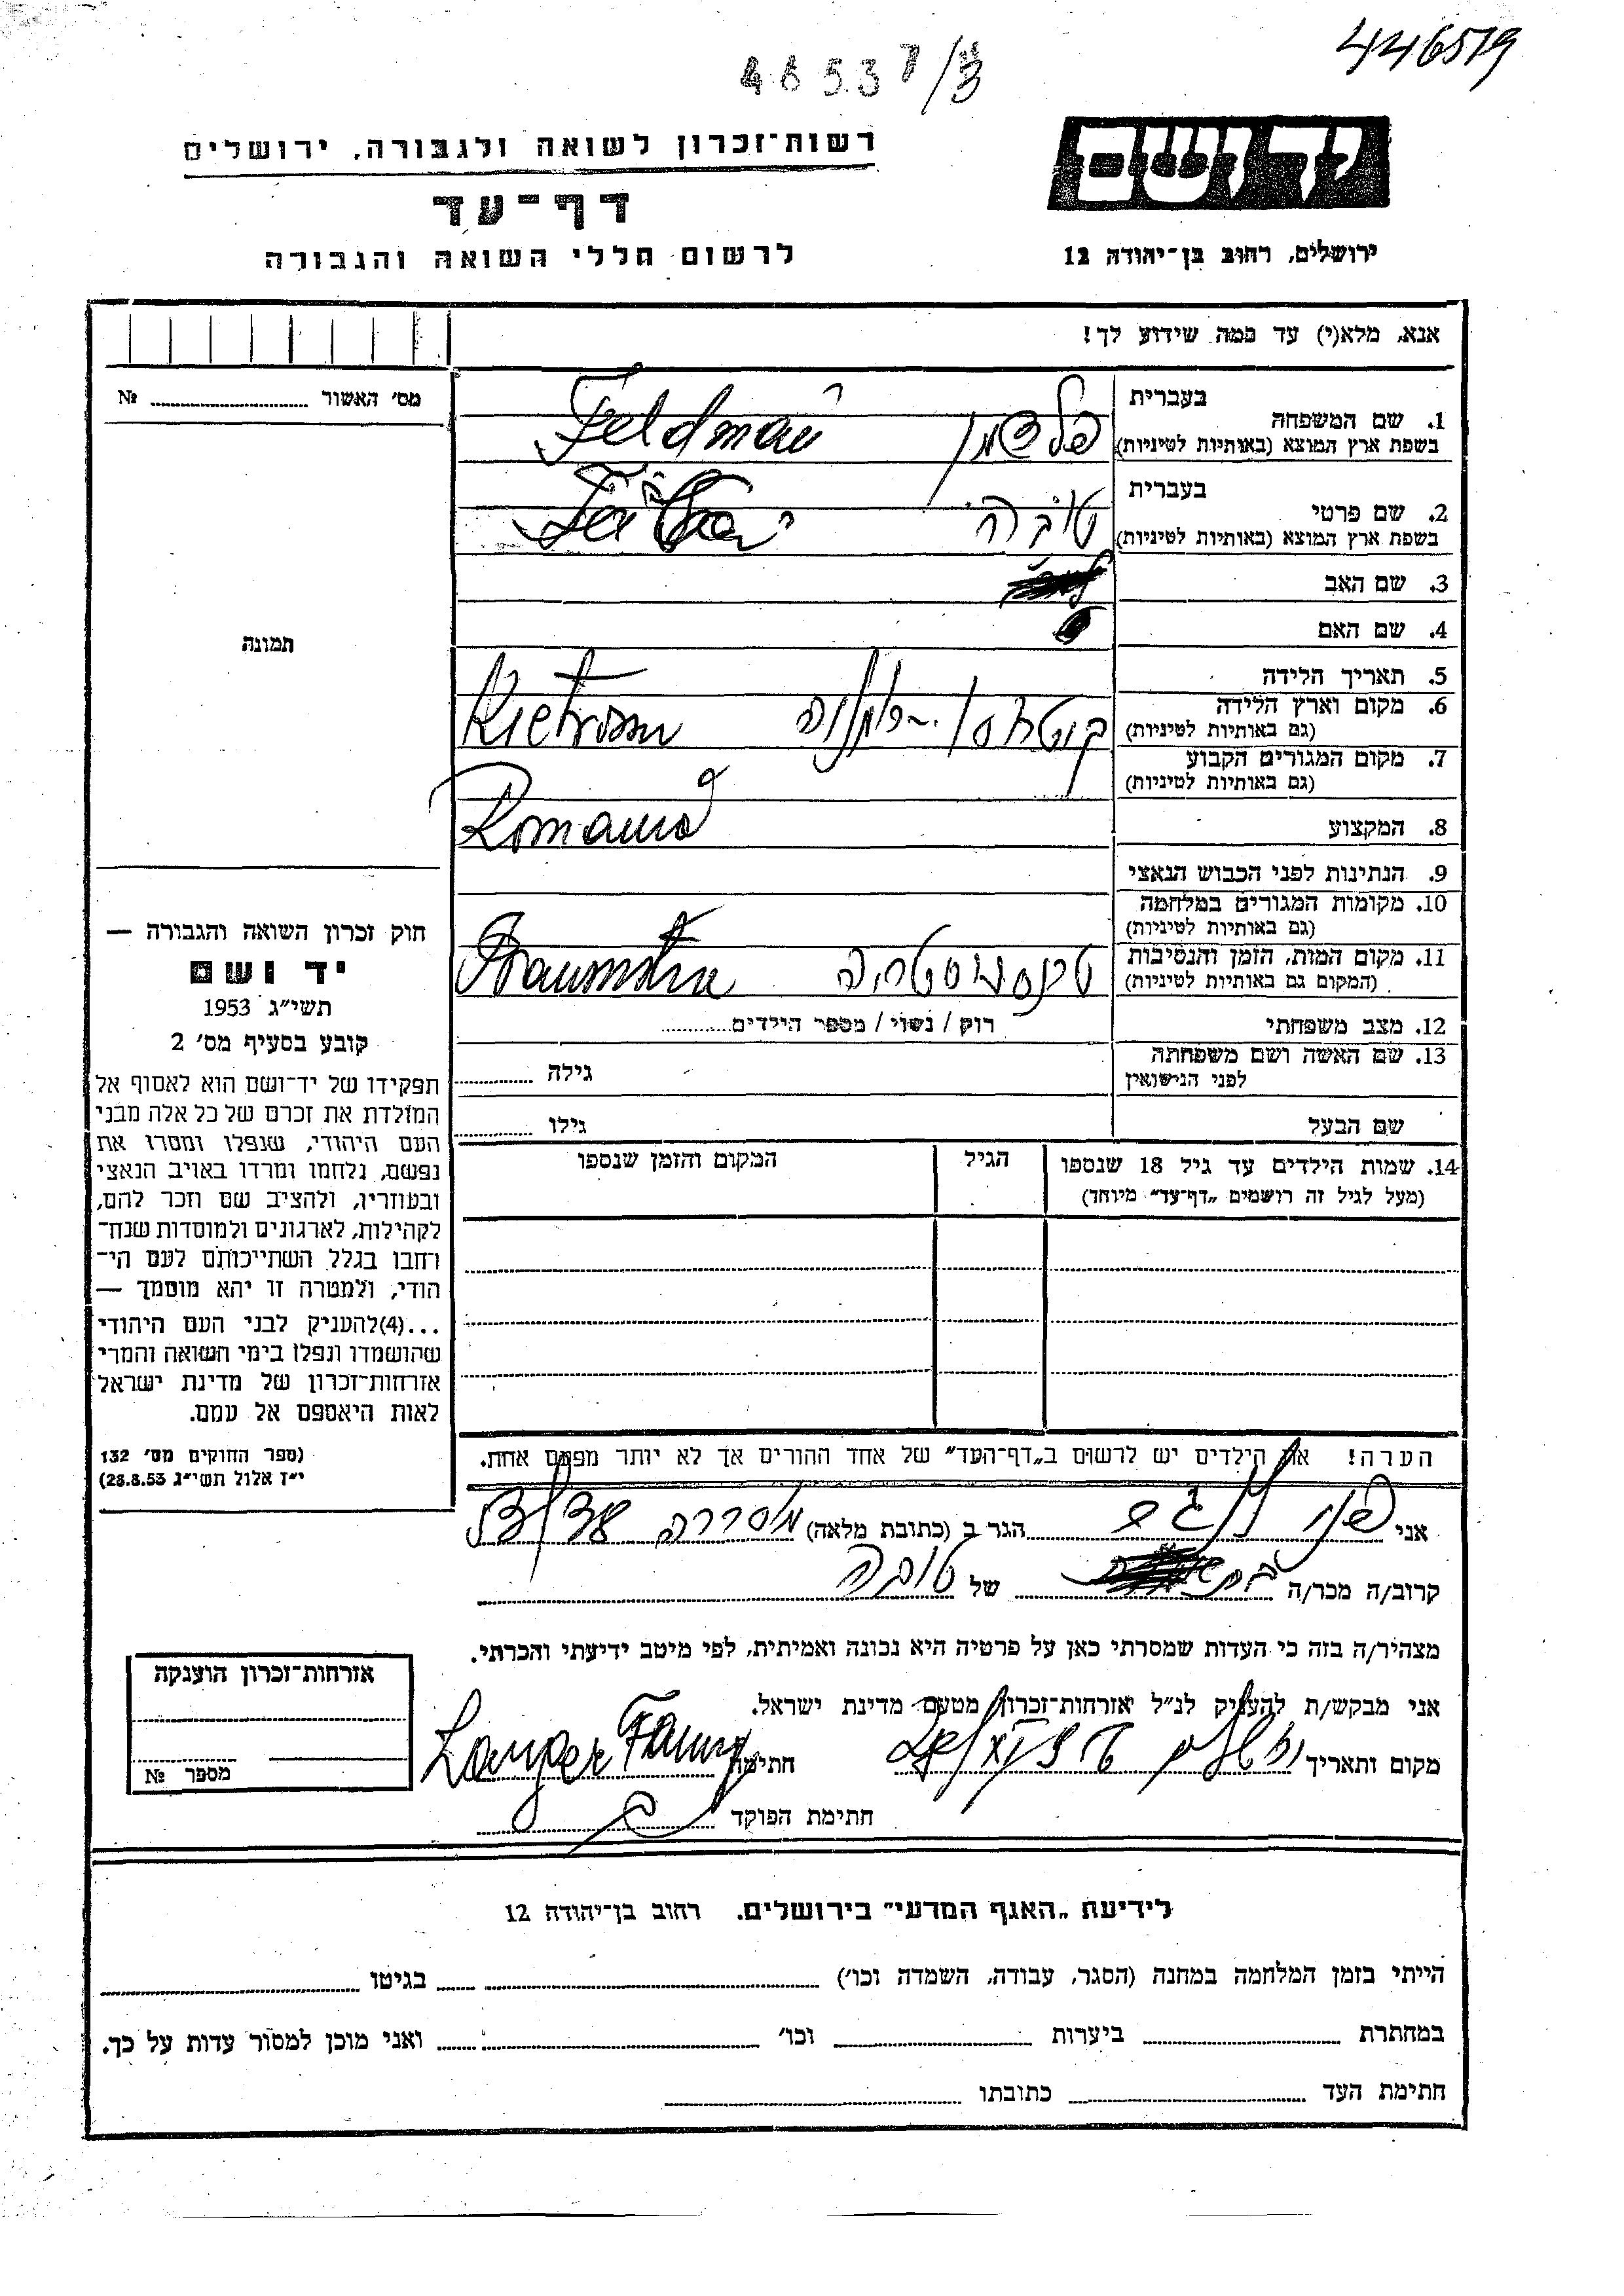 446579
46537/3
יד ושם
רשות־זכרון לשואה ולגבורה, ירושלים
דף־עד
לרשום חללי השואה והגבורה
ירושלים, רחוב בן־יהודה 12
אנא, מלא(י) עד כמה שידוע לך!
מס' האשור № 
1. שם המשפחה
בעברית
בשפת ארץ המוצא (באותיות לטיניות)
פלדמן Feldman
2. שם פרטי
בעברית
בשפת ארץ המוצא (באותיות לטיניות)
טובה
3. שם האב
4. שם האם
תמונה
5. תאריך הלידה
6. מקום וארץ הלידה
(גם באותיות לטיניות)
7. מקום המגורים הקבוע
(גם באותיות לטיניות)
8. המקצוע
9. הנתינות לפני הכבוש הנאצי
10. מקומות המגורים במלחמה
(גם באותיות לטיניות)
11. מקום המות, הזמן והנסיבות
(המקום גם באותיות לטיניות)
12. מצב משפחתי
רוק / נשוי / מספר הילדים
13. שם האשה ושם משפחתה
לפני הנישואין
גילה
שם הבעל
גילו
14. שמות הילדים עד גיל 18 שנספו
(מעל לגיל זה רושמים „דף־עד" מיוחד)
הגיל
המקום והזמן שנספו
חוק זכרון השואה והגבורה —
יד ושם
תשי"ג 1953
קובע בסעיף מס' 2
תפקידו של יד־ושם הוא לאסוף אל
המולדת את זכרם של כל אלה מבני
העם היהודי, שנפלו ומסרו את
נפשם, נלחמו ומרדו באויב הנאצי
ובעוזריו, ולהציב שם וזכר להם,
לקהילות, לארגונים ולמוסדות שנח־
רחבו בגלל השתייכותם לעם הי־
הודי, ולמטרה זו יהא מוסמך —
...(4)להעניק לבני העם היהודי
שהושמדו ונפלו בימי השואה והמרי
אזרחות־זכרון של מדינת ישראל
לאות היאספם אל עמם.
(ספר החוקים מס' 132
י"ז אלול תשי"ג 28.8.53)
הערה! את הילדים יש לרשום ב„דף־העד" של אחד ההורים אך לא יותר מפעם אחת.
אני פני לנגר הגר ב (כתובת מלאה)
קרוב/ה מכר/ה של טובה
מצהיר/ה בזה כי העדות שמסרתי כאן על פרטיה היא נכונה ואמיתית, לפי מיטב ידיעתי והכרתי.
אני מבקש/ת להעניק לנ"ל אזרחות־זכרון מטעם מדינת ישראל.
מקום ותאריך חתימה Langer Fanny
חתימת הפוקד
אזרחות־זכרון הוענקה
מספר №
לידיעת „האגף המדעי" בירושלים. רחוב בן־יהודה 12
הייתי בזמן המלחמה במחנה (הסגר, עבודה, השמדה וכו') בגיטו
במחתרת ביערות וכו' ואני מוכן למסור עדות על כך.
חתימת העד כתובתו